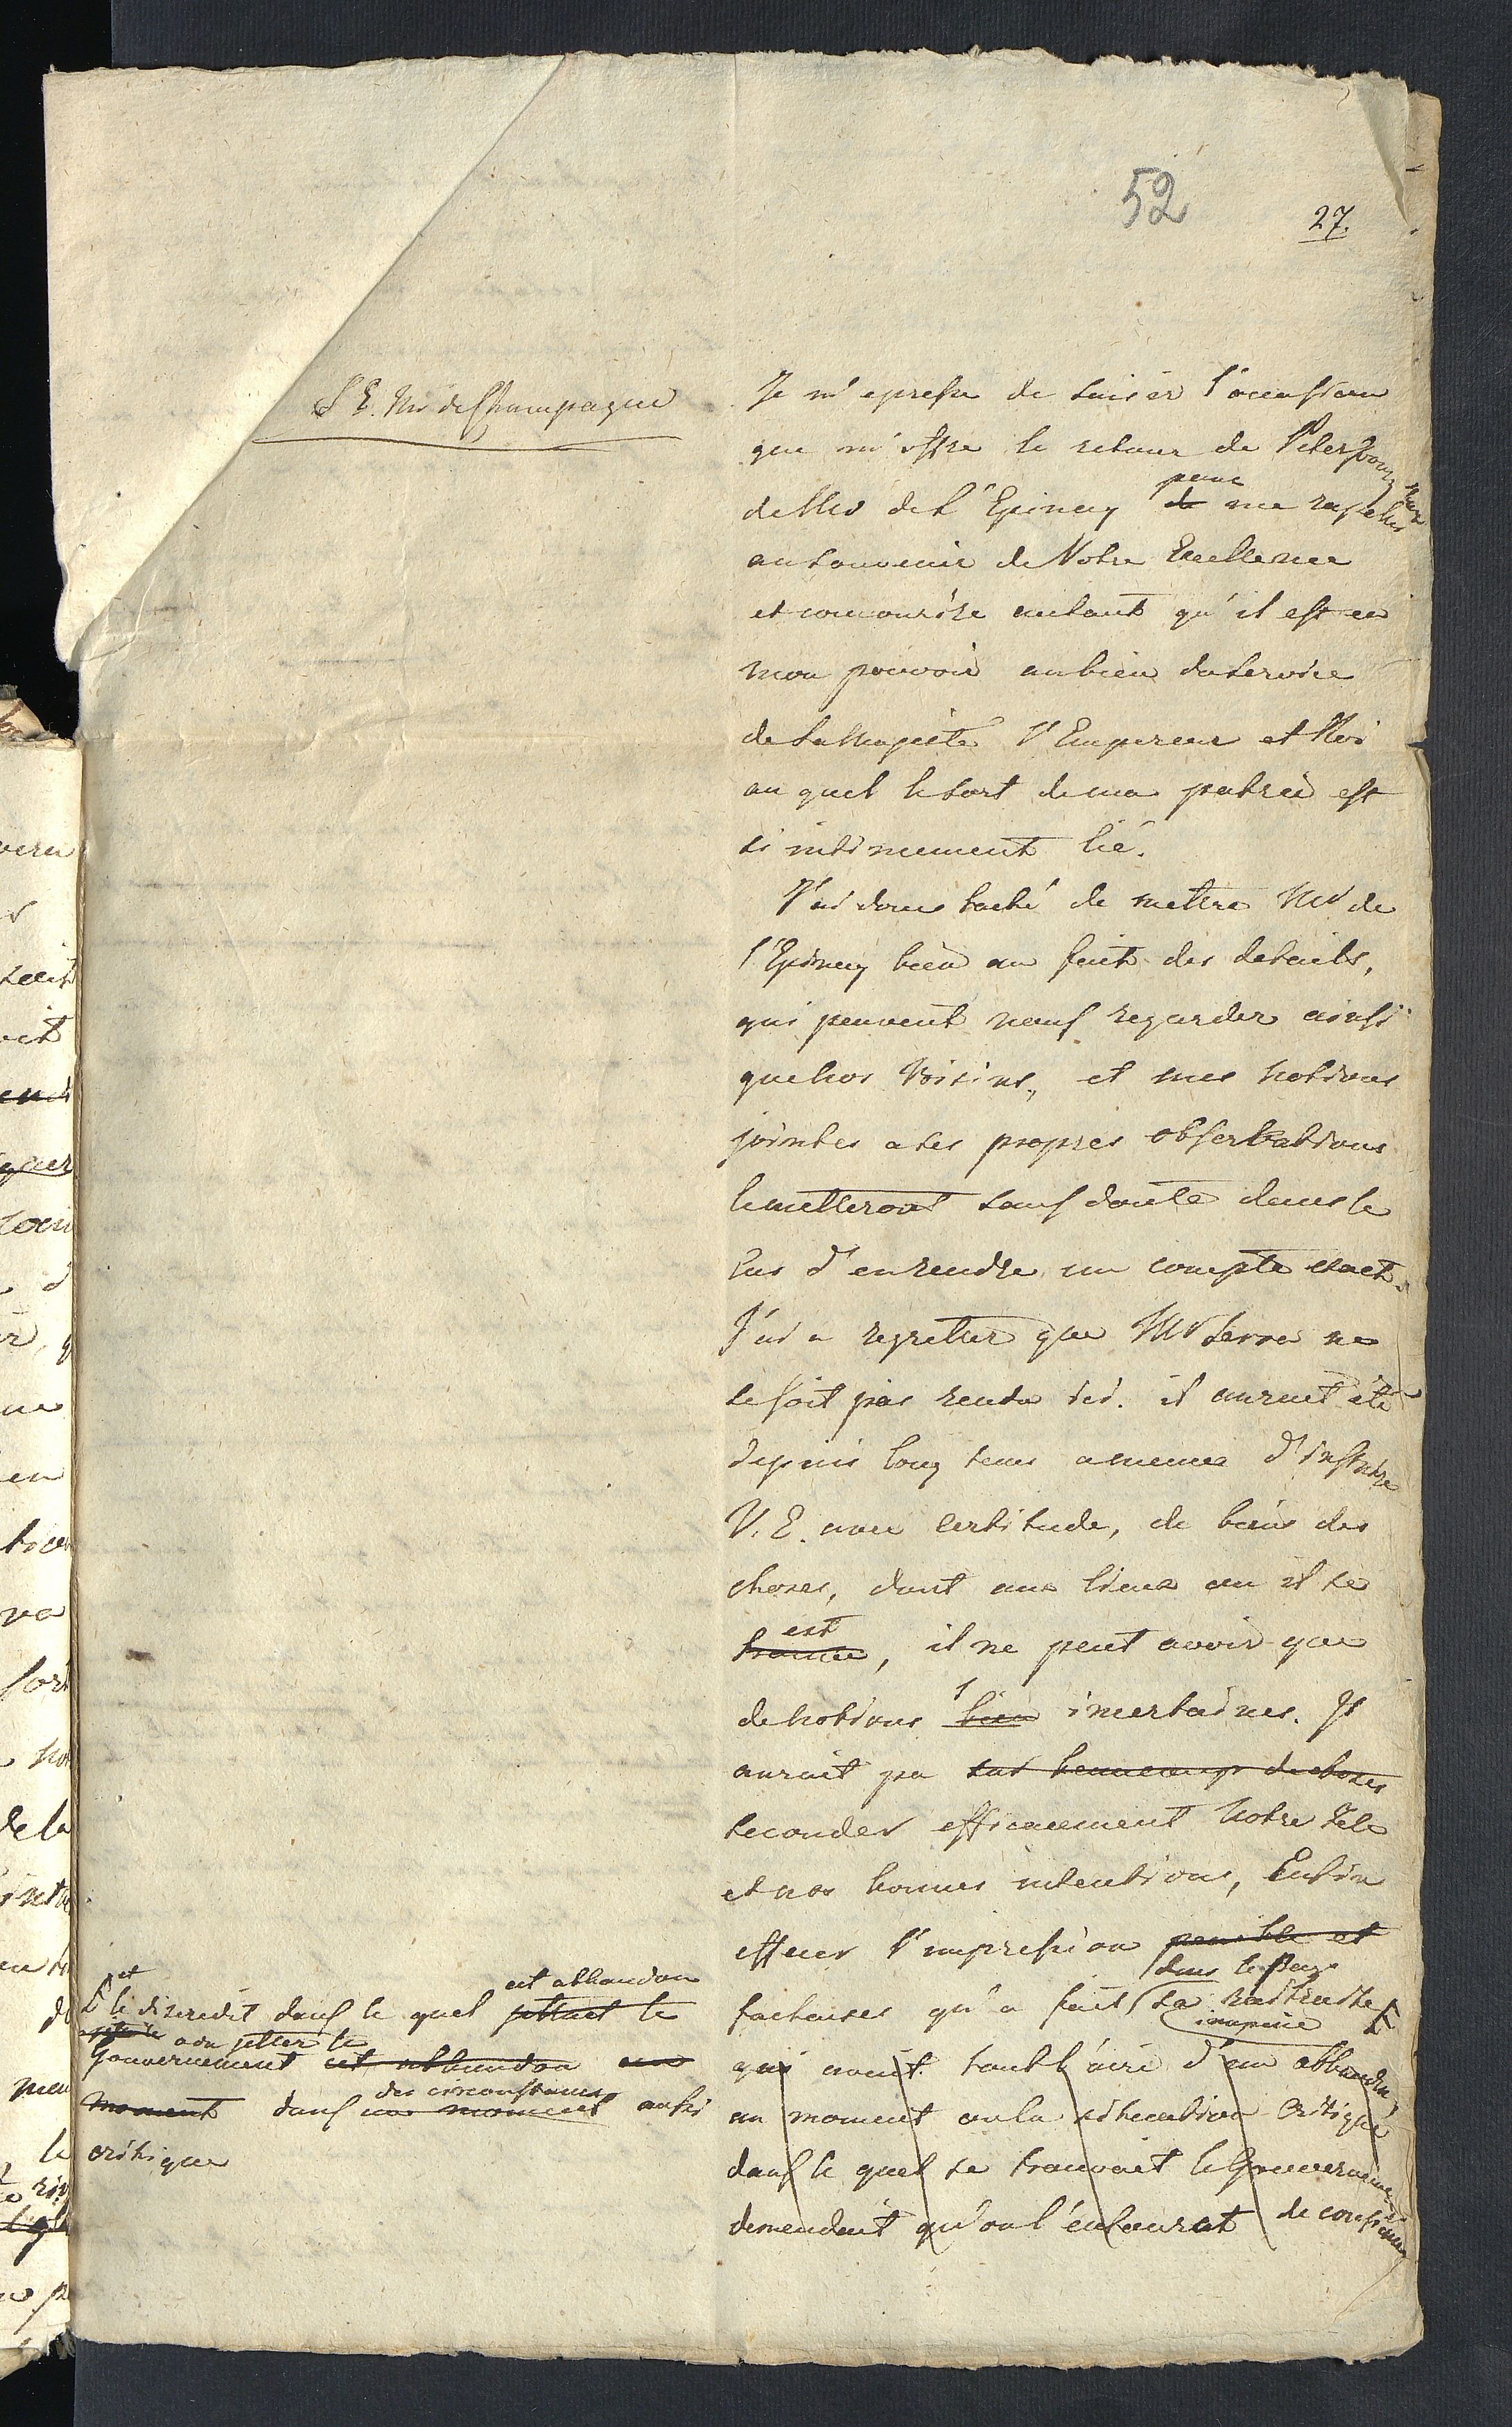 52
27.
S E. Mr de Champagne
Je m'epresse de saisir l'occassion
que m'offre le retour de Petersbourg
de Mr de L'Epinay pour de me rapeller
au souvenir de Votre Excellence
et concourire autant qu'il est en
mon pouvoir au bien du service
de Sa Majesté l'Empereur et Roi
au quel le sort de ma patrie est
si intimement lié.
J'ai donc taché de mettre Mr de
l'Epinay bien au fait des details,
qui peuvent nous regarder ainssi
que nos Voisins, et mes notions
jointes a ses propres observations
le metteront sans doute dans le
cas d'en rendre un compte exact.
J'ai a regretter que Mr Serra ne
se soit pas rendu ici. il aurait été
depuis long tems a meme d'instruire
V. E. avec certitude, de bien des
choses, dont aux lieux ou il se
trouve est, il ne peut avoir que
de notions bien incertaines. Il
aurait pu sur beaucoup de choses
seconder efficacement notre zele
et nos bonnes intentions, Enfin
effacer l'impression penible et
facheuses qu'a fait dans le Pays sa retraite
qui avait tout l'aire d'un abbandon
au moment ou la situcation critique
dans le quel se trouvait le Gouvernement
demendait qu'on l'entourat de confiance
et
le discredit dans le quel cet abbandon jettait le
a du jetter le
Gouvernement cet abbandon au
moment dans des circonstances un moment aussi
critique